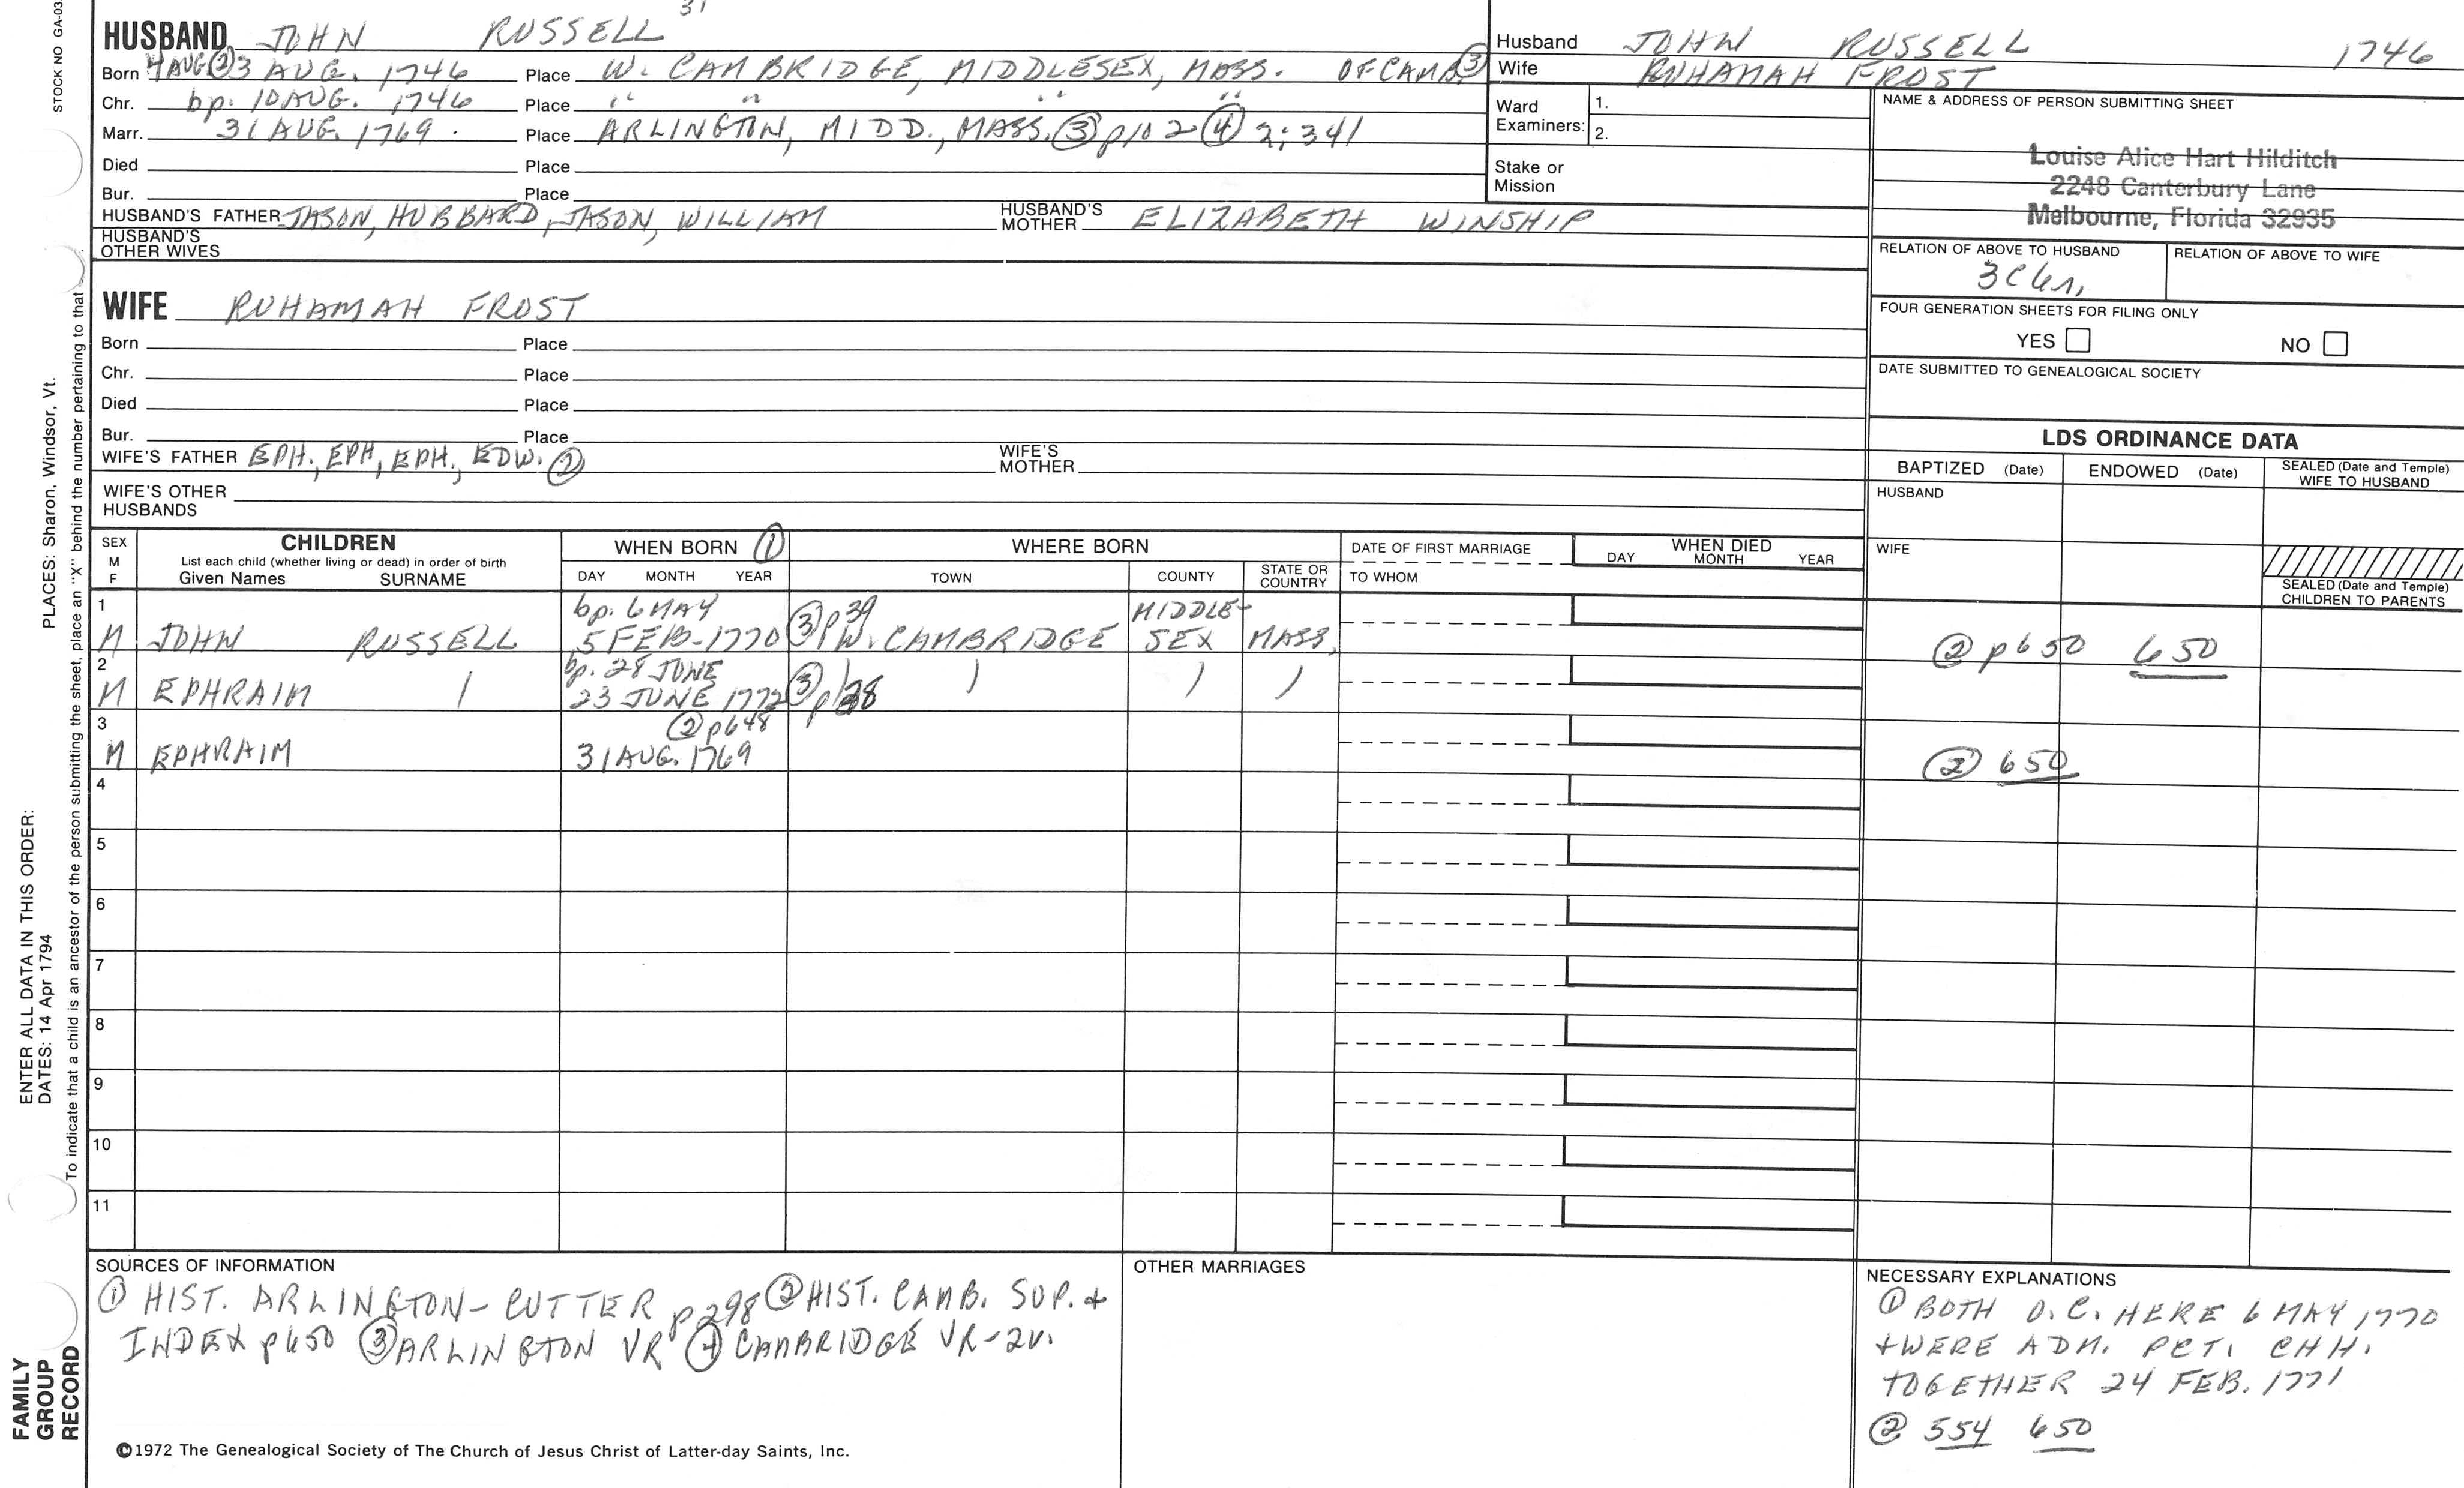 STOCK NO GA-03
31
HUSBAND JOHN RUSSELL
Born 4 AUG ② 3 AUG. 1746 Place W. CAMBRIDGE, MIDDLESEX, MASS. OF CAMB ③
Chr. bp. 10 AUG. 1746 Place " " " "
Marr. 31 AUG. 1769. Place ARLINGTON, MIDD., MASS. ③ p102 ④ 2:341
Died Place
Bur. Place
HUSBAND'S FATHER JASON, HUBBARD, JASON, WILLIAM HUSBAND'S MOTHER ELIZABETH WINSHIP
HUSBAND'S OTHER WIVES
WIFE RUHAMAH FROST
Born Place
Chr. Place
Died Place
Bur. Place
WIFE'S FATHER EPH., EPH, EPH., EDW. ② WIFE'S MOTHER
WIFE'S OTHER HUSBANDS
Husband JOHN RUSSELL 1746
Wife RUHAMAH FROST
Ward Examiners: 1.
2.
Stake or Mission
NAME & ADDRESS OF PERSON SUBMITTING SHEET
Louise Alice Hart Hilditch
2248 Canterbury Lane
Melbourne, Florida 32935
RELATION OF ABOVE TO HUSBAND RELATION OF ABOVE TO WIFE
FOUR GENERATION SHEETS FOR FILING ONLY
YES NO
DATE SUBMITTED TO GENEALOGICAL SOCIETY
LDS ORDINANCE DATA
BAPTIZED (Date) ENDOWED (Date) SEALED (Date and Temple) WIFE TO HUSBAND
HUSBAND
WIFE
SEALED (Date and Temple) CHILDREN TO PARENTS
SEX M F CHILDREN
List each child (whether living or dead) in order of birth
Given Names SURNAME
WHEN BORN ① DAY MONTH YEAR
WHERE BORN TOWN COUNTY STATE OR COUNTRY
DATE OF FIRST MARRIAGE TO WHOM
WHEN DIED DAY MONTH YEAR
1 bp. 6 MAY ③ p39 MIDDLE-
M JOHN RUSSELL 5 FEB-1770 W. CAMBRIDGE SEX MASS. ② p650 650
2 bp. 28 JUNE
M EPHRAIM 23 JUNE 1772 ③ p38
3 ② p648
M EPHRAIM 31 AUG. 1769 ② 650
4
5
6
7
8
9
10
11
SOURCES OF INFORMATION
① HIST. ARLINGTON-CUTTER p298 ② HIST. CAMB. SUP. +
INDEX p650 ③ ARLINGTON VR ④ CAMBRIDGE VR-2V.
©1972 The Genealogical Society of The Church of Jesus Christ of Latter-day Saints, Inc.
OTHER MARRIAGES
NECESSARY EXPLANATIONS
① BOTH O.C. HERE 6 MAY 1770
+ WERE ADM. PCT. CHH.
TOGETHER 24 FEB. 1771
② 554 650
ENTER ALL DATA IN THIS ORDER:
DATES: 14 Apr 1794 PLACES: Sharon, Windsor, Vt.
To indicate that a child is an ancestor of the person submitting the sheet, place an "X" behind the number pertaining to that
FAMILY
GROUP
RECORD